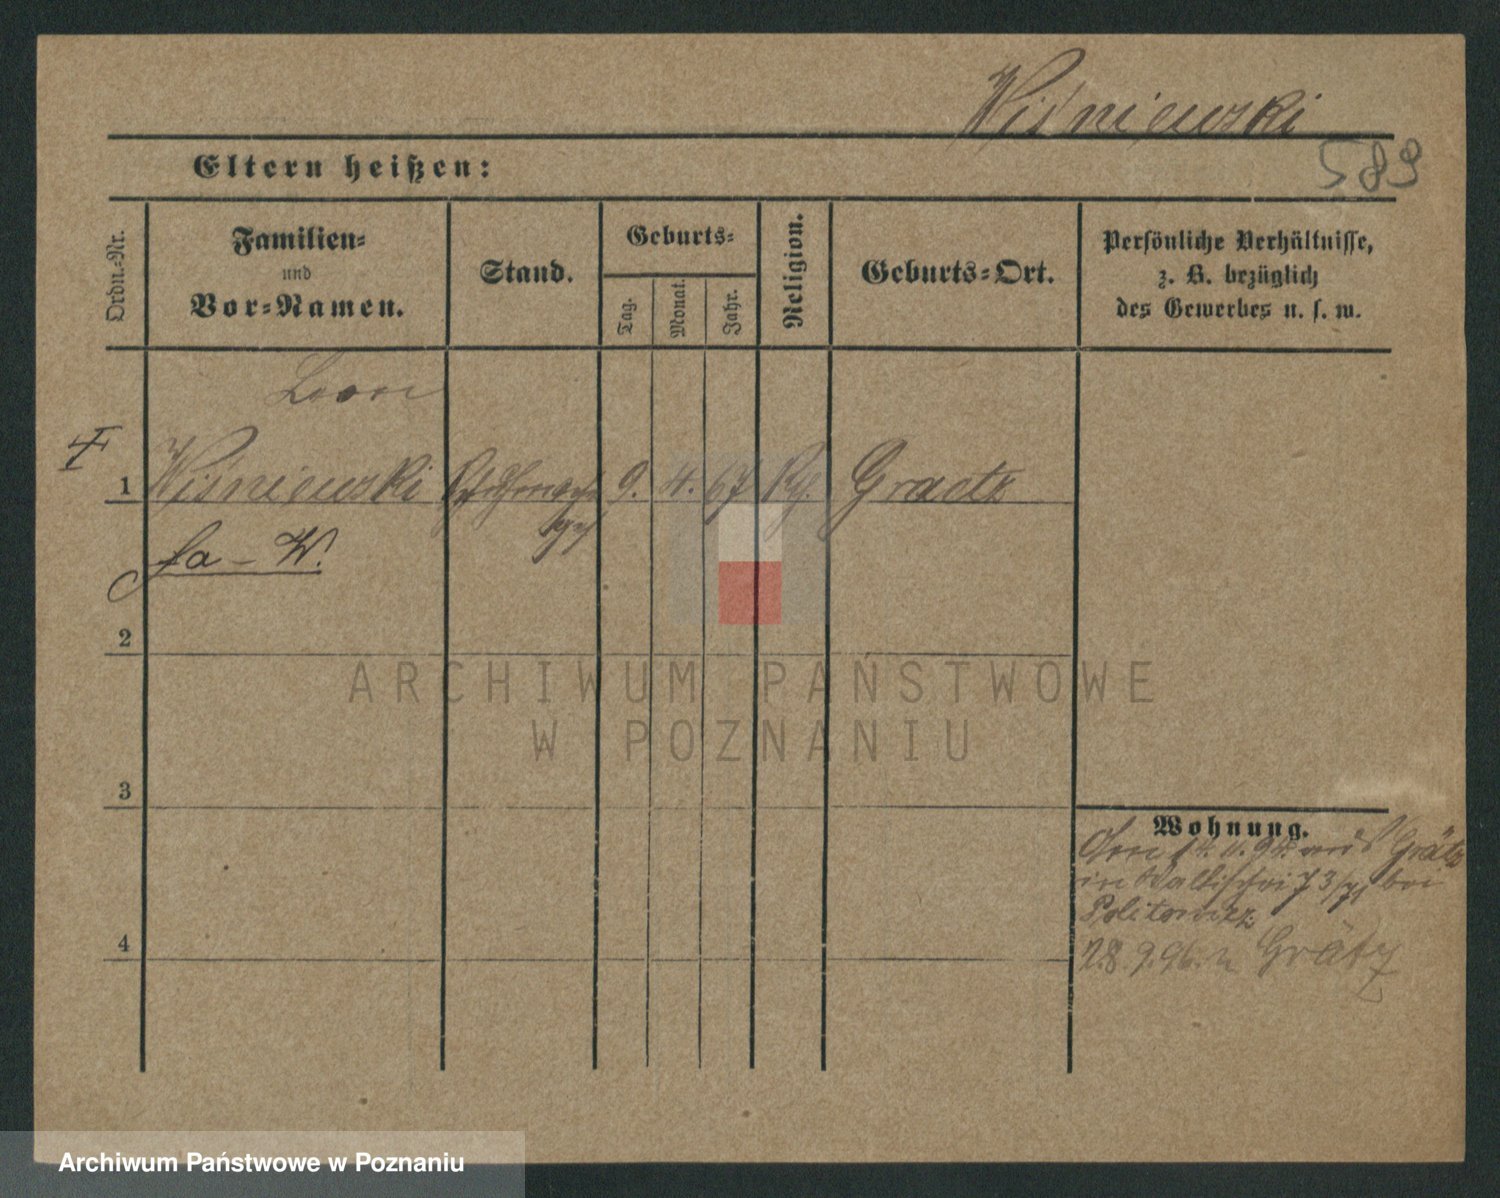 Wiśniewski
589
Eltern heißen:
Ordn.-Nr.
Familien-
und
Vor-Namen.
Stand.
Geburts-
Tag.
Monat.
Jahr.
Religion.
Geburts-Ort.
Persönliche Verhältnisse,
z. B. bezüglich
des Gewerbes u. s. w.
Leon
1 Wiśniewski 9. 4. 67 Graetz
fa – W.
2
3
4
Wohnung.
14. 11. 94. aus Grätz
in Wallischei 73 bei
28.9.96. n Grätz
ARCHIWUM PAŃSTWOWE
W POZNANIU
Archiwum Państwowe w Poznaniu